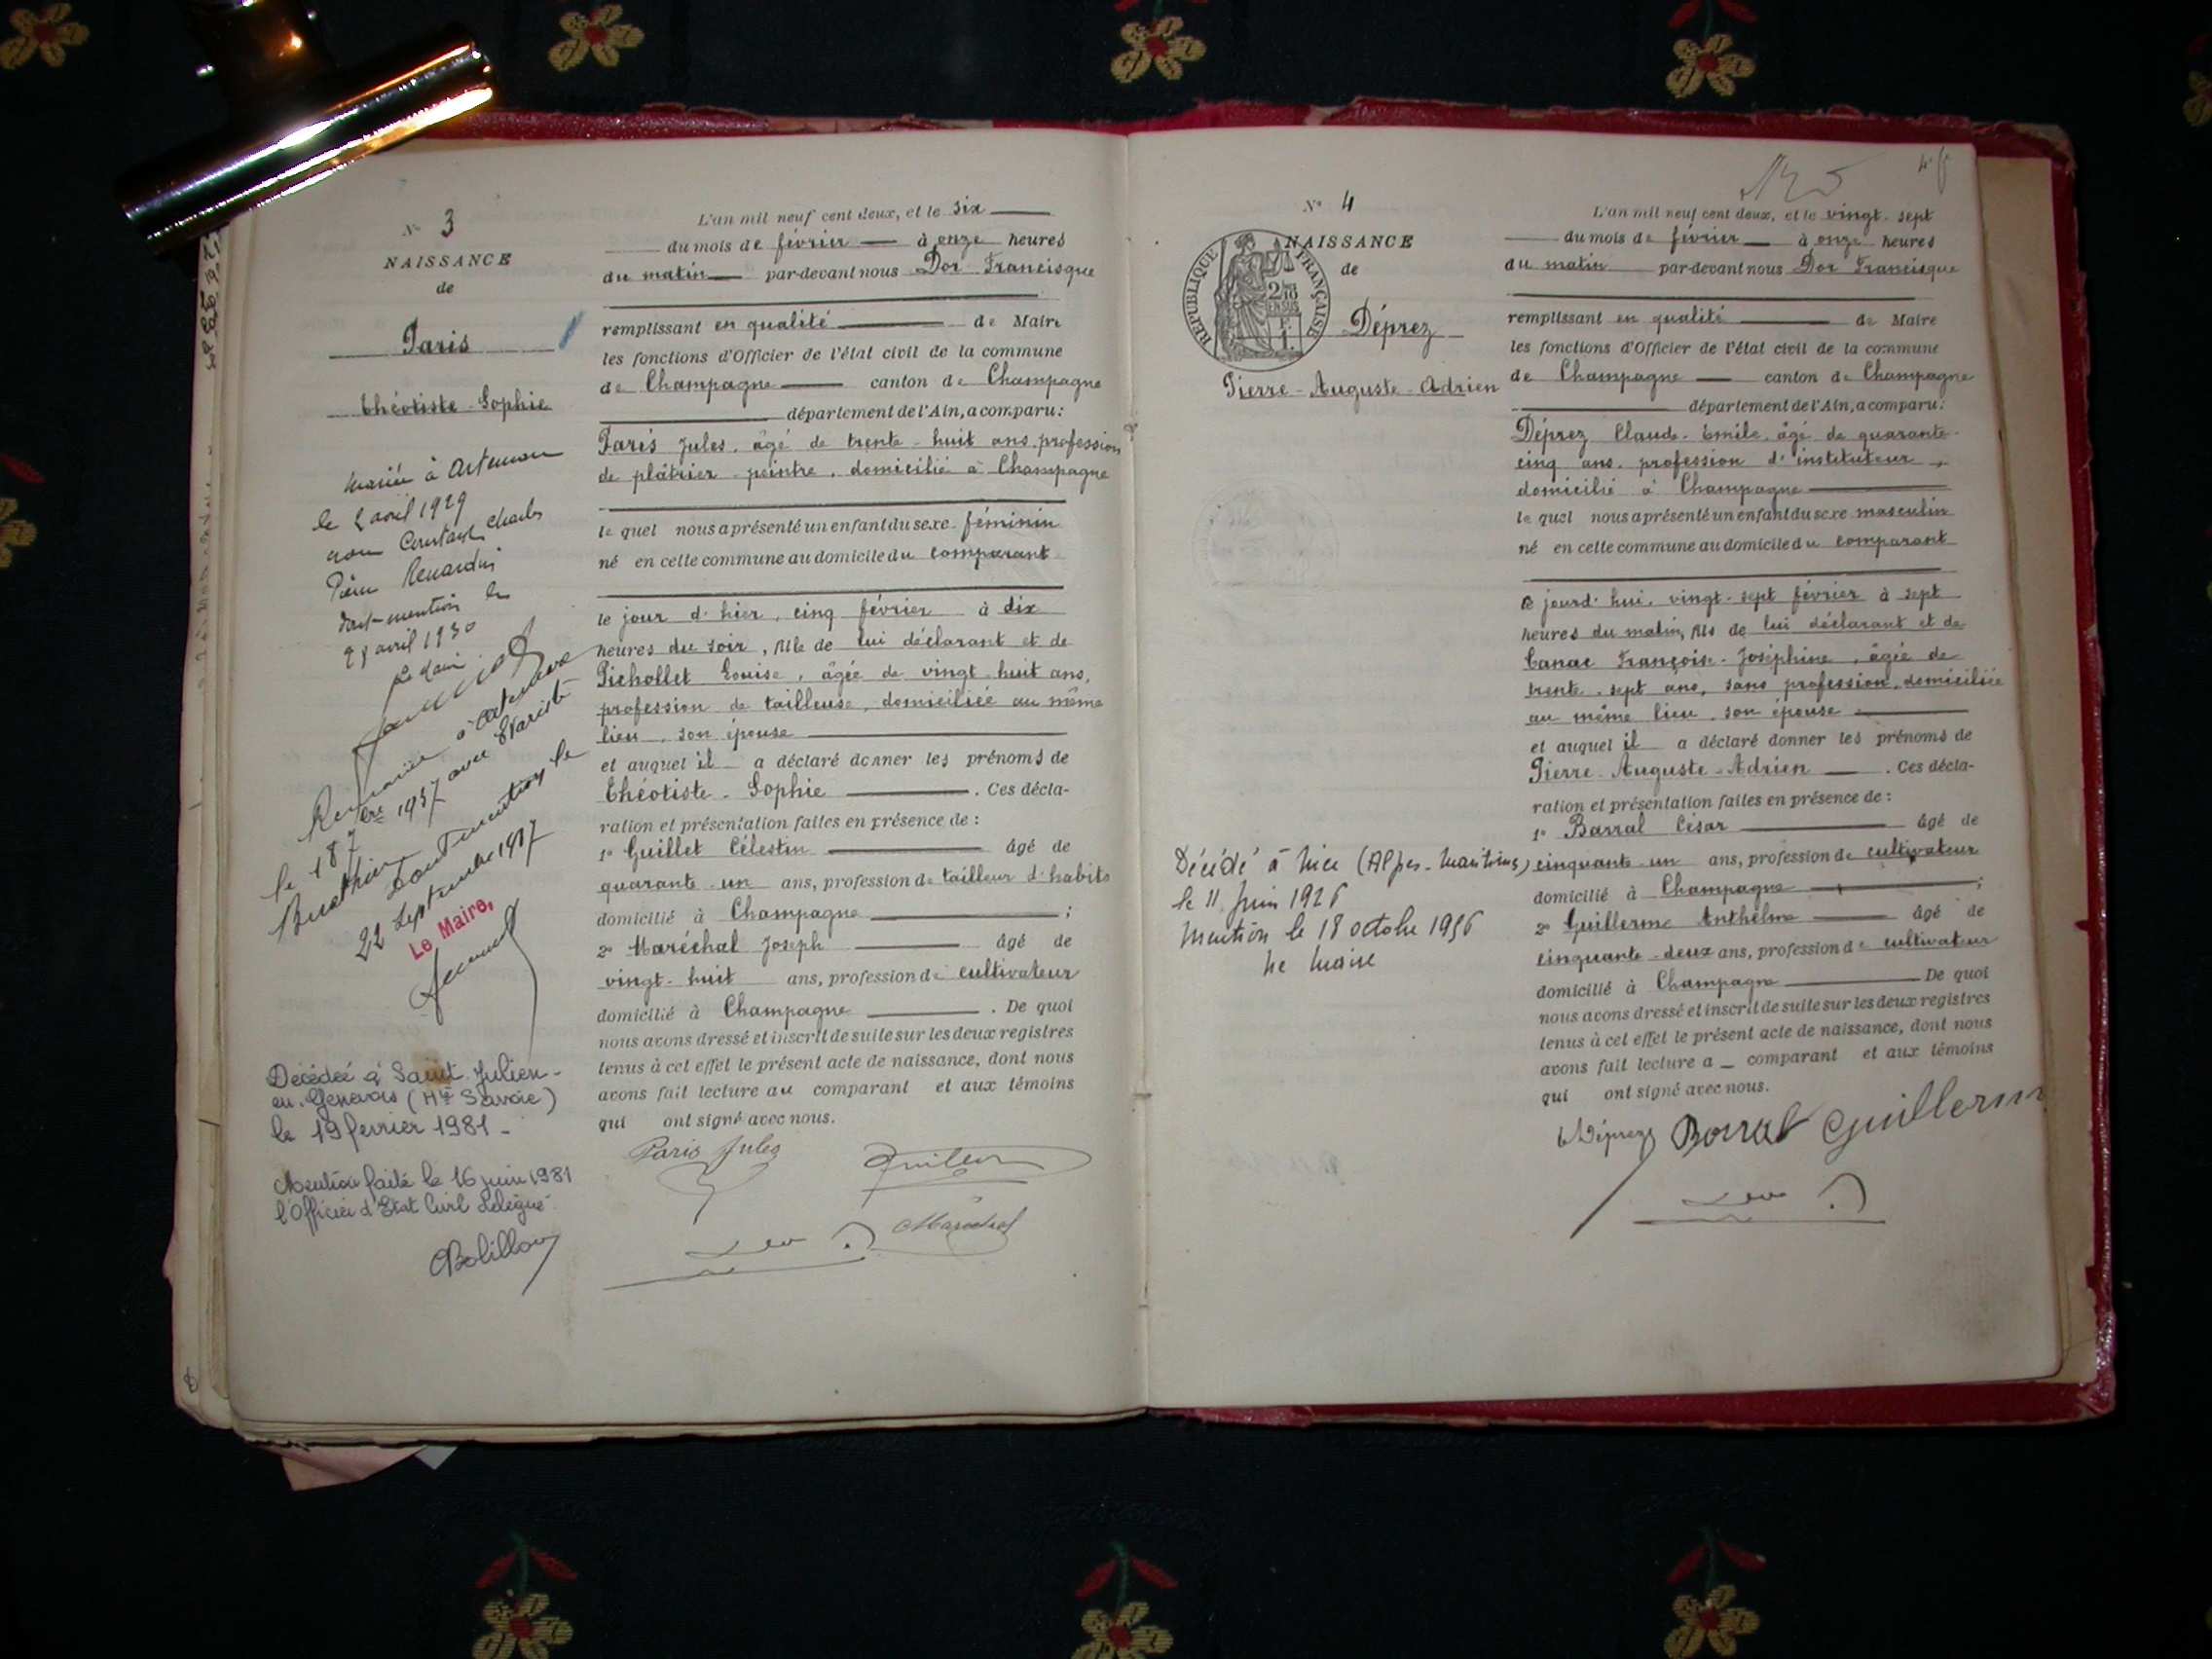 N° 3
NAISSANCE
de
Paris
Théotiste-Sophie
Mariée à Artemare
le 2 avril 1929
Constant Charles
dont mention le
avril 1930
à Artemare
le 18 7bre 1937 avec
Dont mention le
22 Septembre 1937
Le Maire,
Décédée à Saint-Julien-
en-Genevois (Hte Savoie)
le 19 fevrier 1981-
Mention faite le 16 juin 1981
l'Officier d'Etat Civil Délégué
L'an mil neuf cent deux, et le six
du mois de février à onze heures
du matin par-devant nous Dor Francisque
remplissant en qualité de Maire
les fonctions d'Officier de l'état civil de la commune
de Champagne canton de Champagne
département de l'Ain, a comparu:
Paris Jules, âgé de trente-huit ans, profession
de plâtrier-peintre, domicilié à Champagne
le quel nous a présenté un enfant du sexe féminin
né en cette commune au domicile du comparant
le jour d'hier, cinq février à dix
heures du soir, fille de lui déclarant et de
Pichollet Louise, âgée de vingt-huit ans,
profession de tailleuse, domiciliée au même
lieu, son épouse
et auquel il a déclaré donner les prénoms de
Théotiste-Sophie . Ces décla-
ration et présentation faites en présence de :
1° Guillet Célestin âgé de
quarante-un ans, profession de tailleur d'habits
domicilié à Champagne ;
2° Maréchal Joseph âgé de
vingt-huit ans, profession de cultivateur
domicilié à Champagne . De quoi
nous avons dressé et inscrit de suite sur les deux registres
tenus à cet effet le présent acte de naissance, dont nous
avons fait lecture au comparant et aux témoins
qui ont signé avec nous.
Paris Jules
Maréchal
N° 4
NAISSANCE
de
REPUBLIQUE FRANÇAISE
Déprez
Pierre-Auguste-Adrien
Décédé à Nice (Alpes-Maritimes)
le 11 Juin 1926
Mention le 18 octobre 1956
Le Maire
L'an mil neuf cent deux, et le vingt-sept
du mois de février à onze heures
du matin par-devant nous Dor Francisque
remplissant en qualité de Maire
les fonctions d'Officier de l'état civil de la commune
de Champagne canton de Champagne
département de l'Ain, a comparu:
Déprez Claude-Emile, âgé de quarante-
cinq ans, profession d'instituteur,
domicilié à Champagne
le quel nous a présenté un enfant du sexe masculin
né en cette commune au domicile du comparant
ce jourd'hui, vingt-sept février à sept
heures du matin, fils de lui déclarant et de
Canac Françoise-Joséphine, âgée de
trente-sept ans, sans profession, domiciliée
au même lieu, son épouse
et auquel il a déclaré donner les prénoms de
Pierre-Auguste-Adrien . Ces décla-
ration et présentation faites en présence de :
1° Barral César âgé de
cinquante-un ans, profession de cultivateur
domicilié à Champagne ;
2° Guillerme Anthelme âgé de
cinquante-deux ans, profession de cultivateur
domicilié à Champagne De quoi
nous avons dressé et inscrit de suite sur les deux registres
tenus à cet effet le présent acte de naissance, dont nous
avons fait lecture a _ comparant et aux témoins
qui ont signé avec nous.
Déprez Barral Guillerme